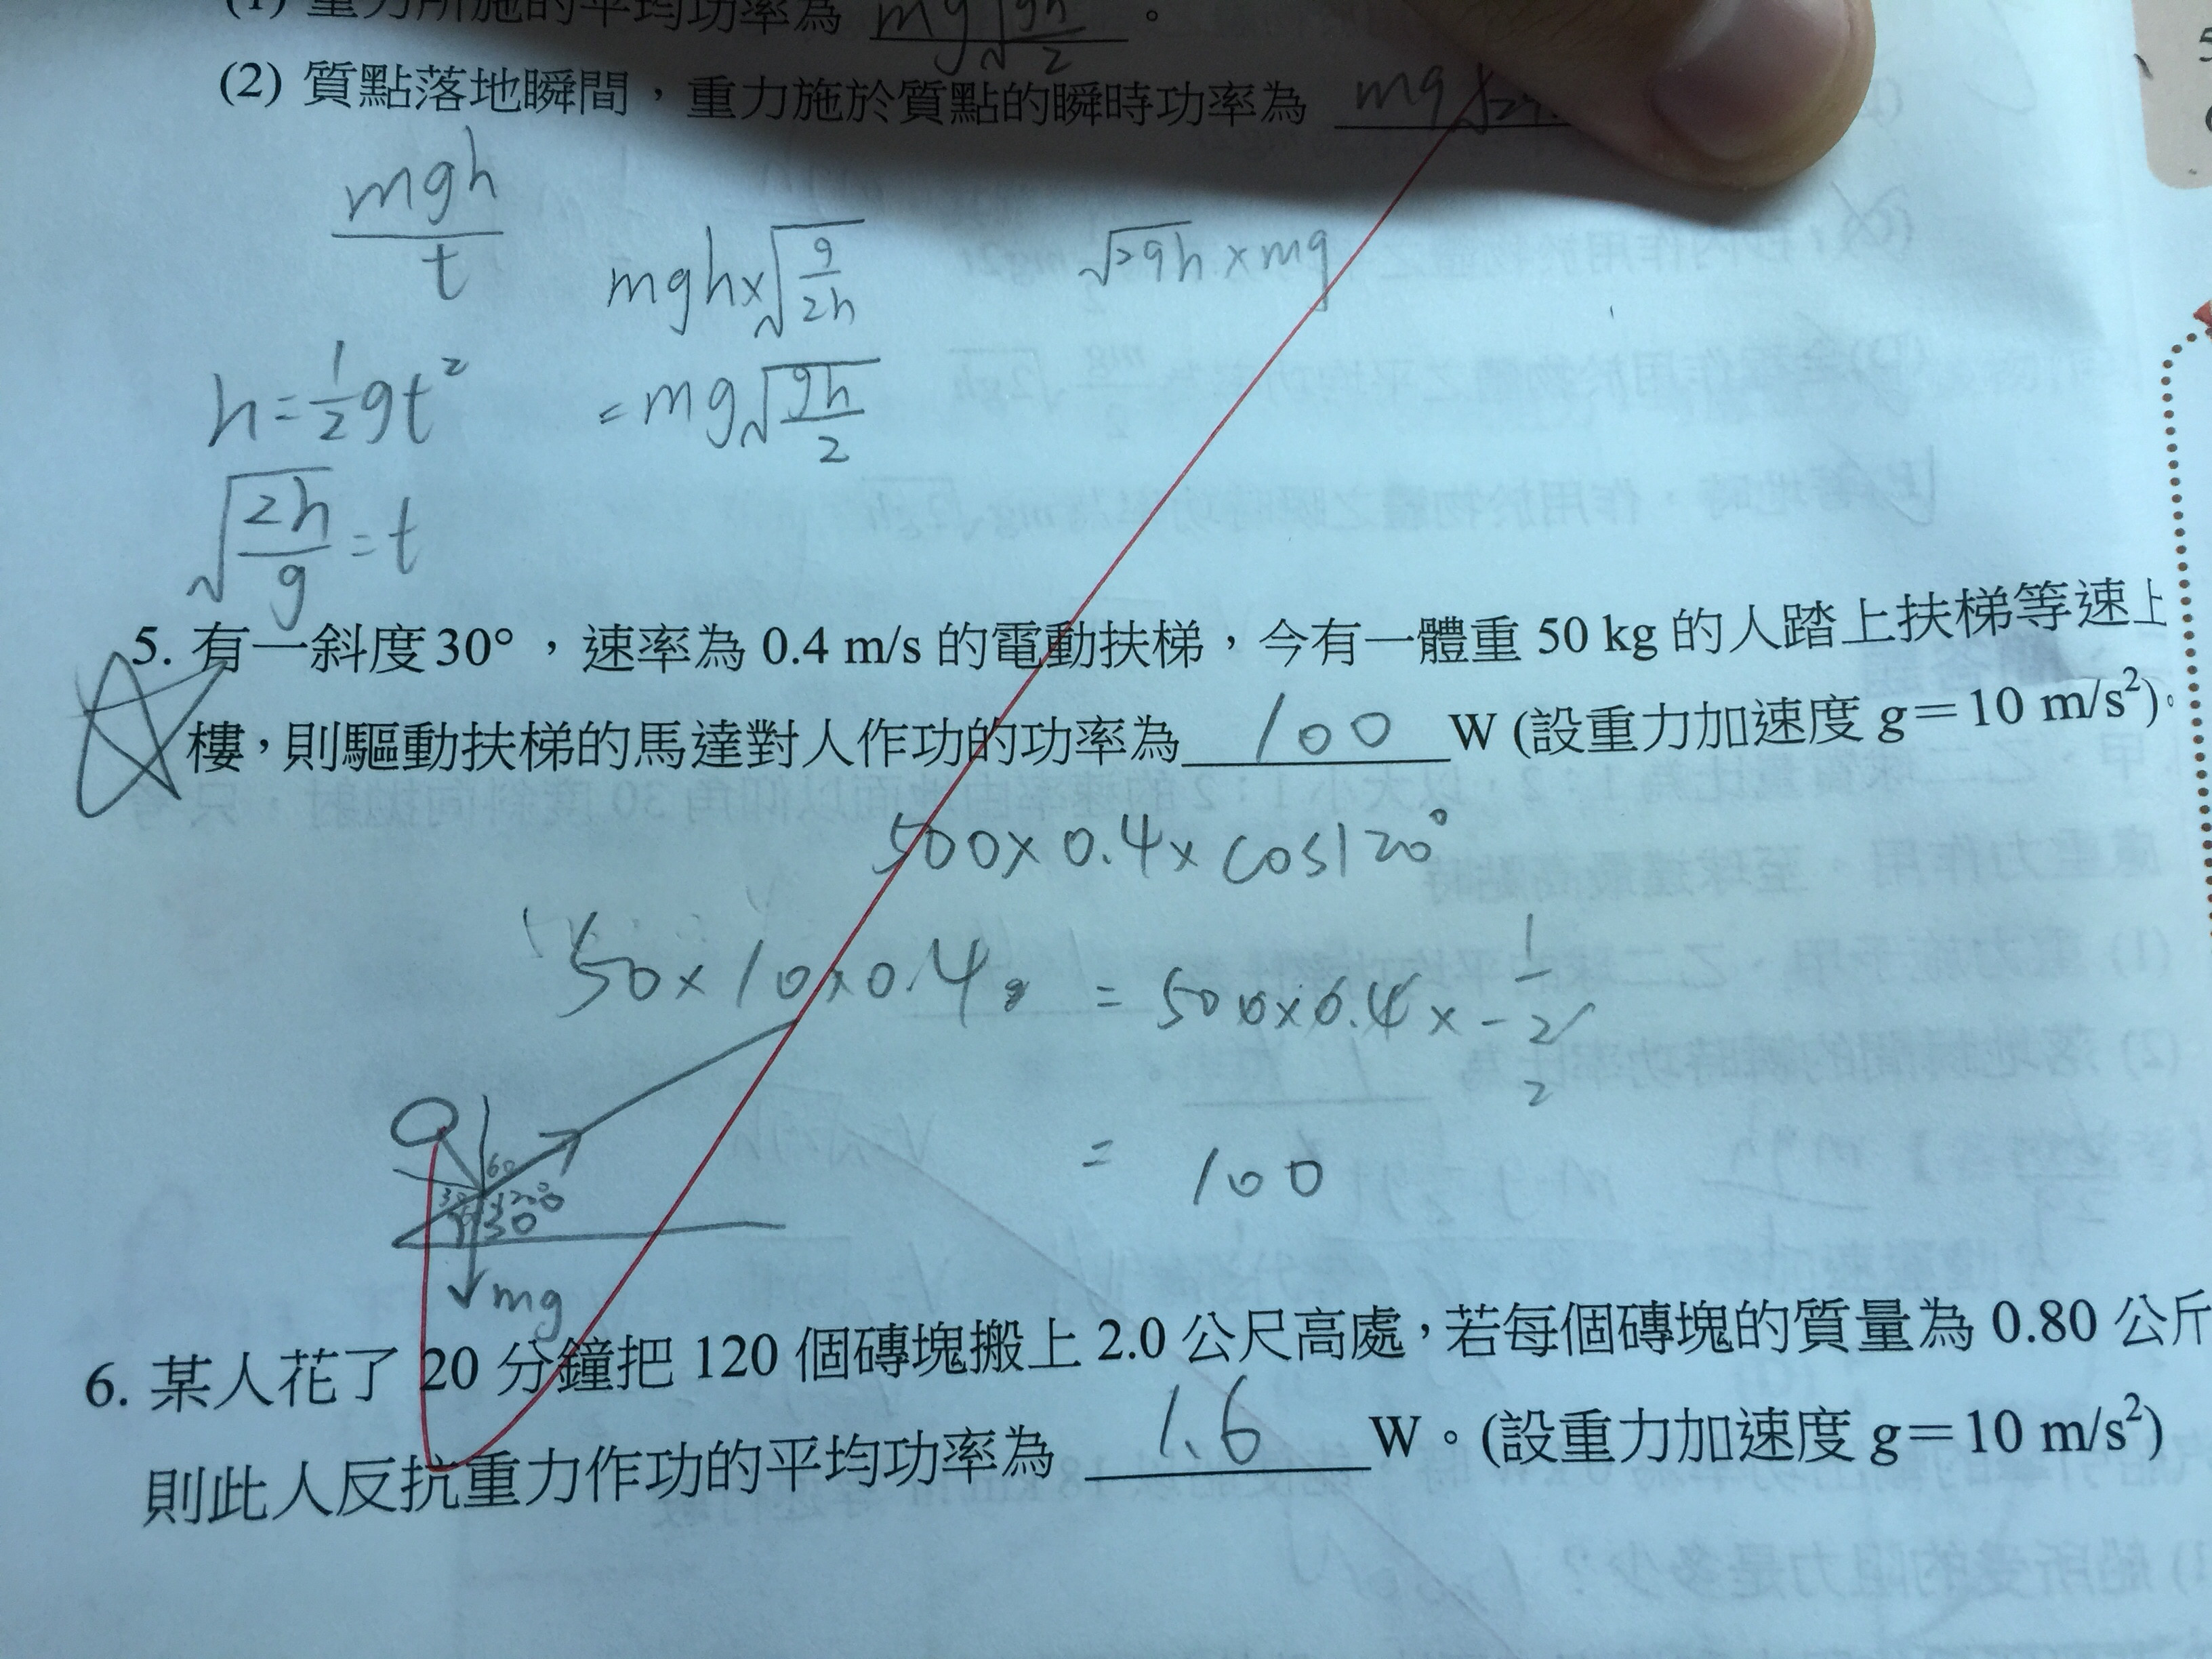 (1) 重力所施的平均功率為 mg√(gh/2) 。
(2) 質點落地瞬間，重力施於質點的瞬時功率為 mg
mgh/t
mgh×√(g/2h)
√2gh × mg
h=½gt²
=mg√(gh/2)
√(2h/g)=t
5. 有一斜度30°，速率為 0.4 m/s 的電動扶梯，今有一體重 50 kg 的人踏上扶梯等速上
樓，則驅動扶梯的馬達對人作功的功率為 100 W (設重力加速度 g＝10 m/s²)。
500×0.4×cos120°
50×10×0.4
=500×0.4×-1/2
2
= 100
60
120°
30°
mg
6. 某人花了 20 分鐘把 120 個磚塊搬上 2.0 公尺高處，若每個磚塊的質量為 0.80 公斤
則此人反抗重力作功的平均功率為 1.6 W。(設重力加速度 g＝10 m/s²)